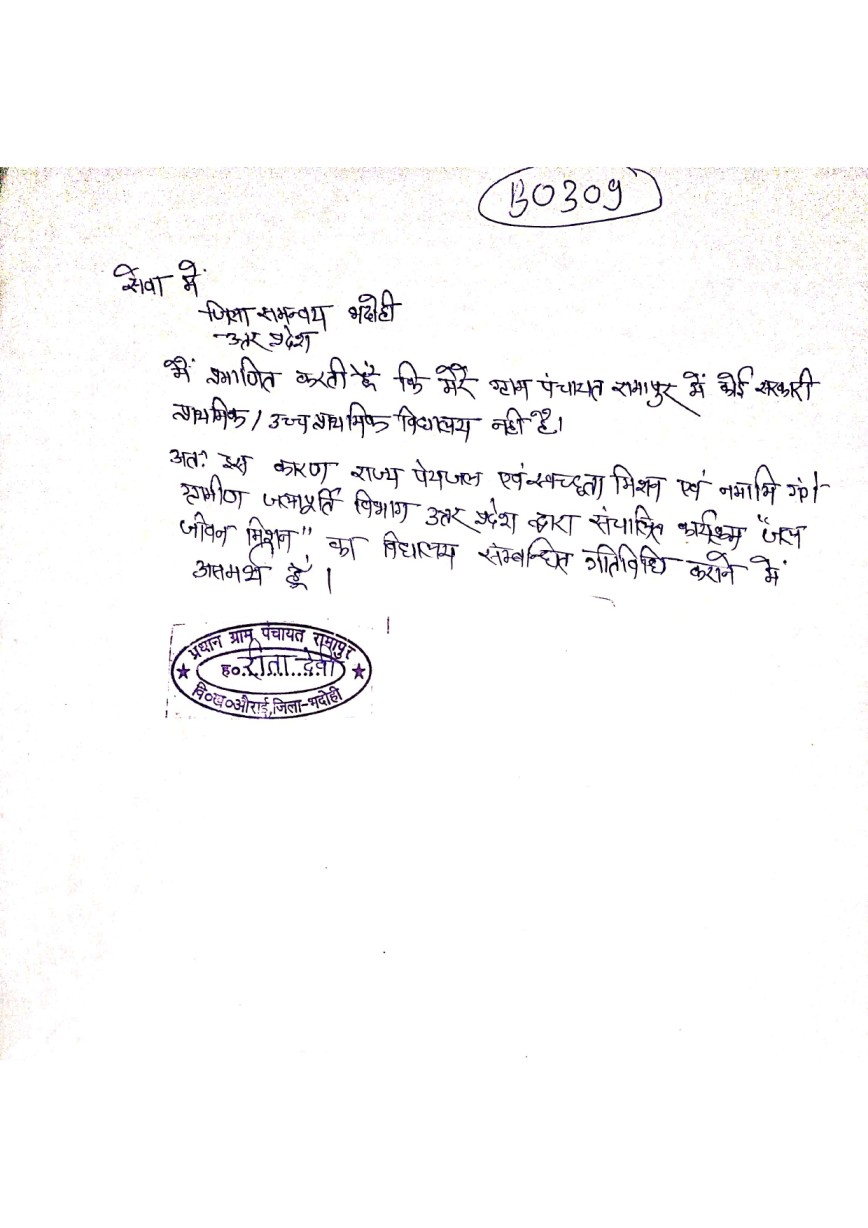 B0309
सेवा में
जिला समन्वय भदोही
उत्तर प्रदेश
मैं प्रमाणित करती हूँ कि मेरे ग्राम पंचायत रामापुर में कोई सरकारी
प्राथमिक / उच्च प्राथमिक विद्यालय नहीं है।
अतः इस कारण राज्य पेयजल एवं स्वच्छता मिशन एवं नमामि गंगे
ग्रामीण जलापूर्ति विभाग उत्तर प्रदेश द्वारा संचालित कार्यक्रम "जल
जीवन मिशन" का विद्यालय सम्बन्धित गतिविधि कराने में
असमर्थ हूँ।
प्रधान ग्राम पंचायत रामापुर
ह०.रीता देवी
वि०ख०औराई,जिला-भदोही